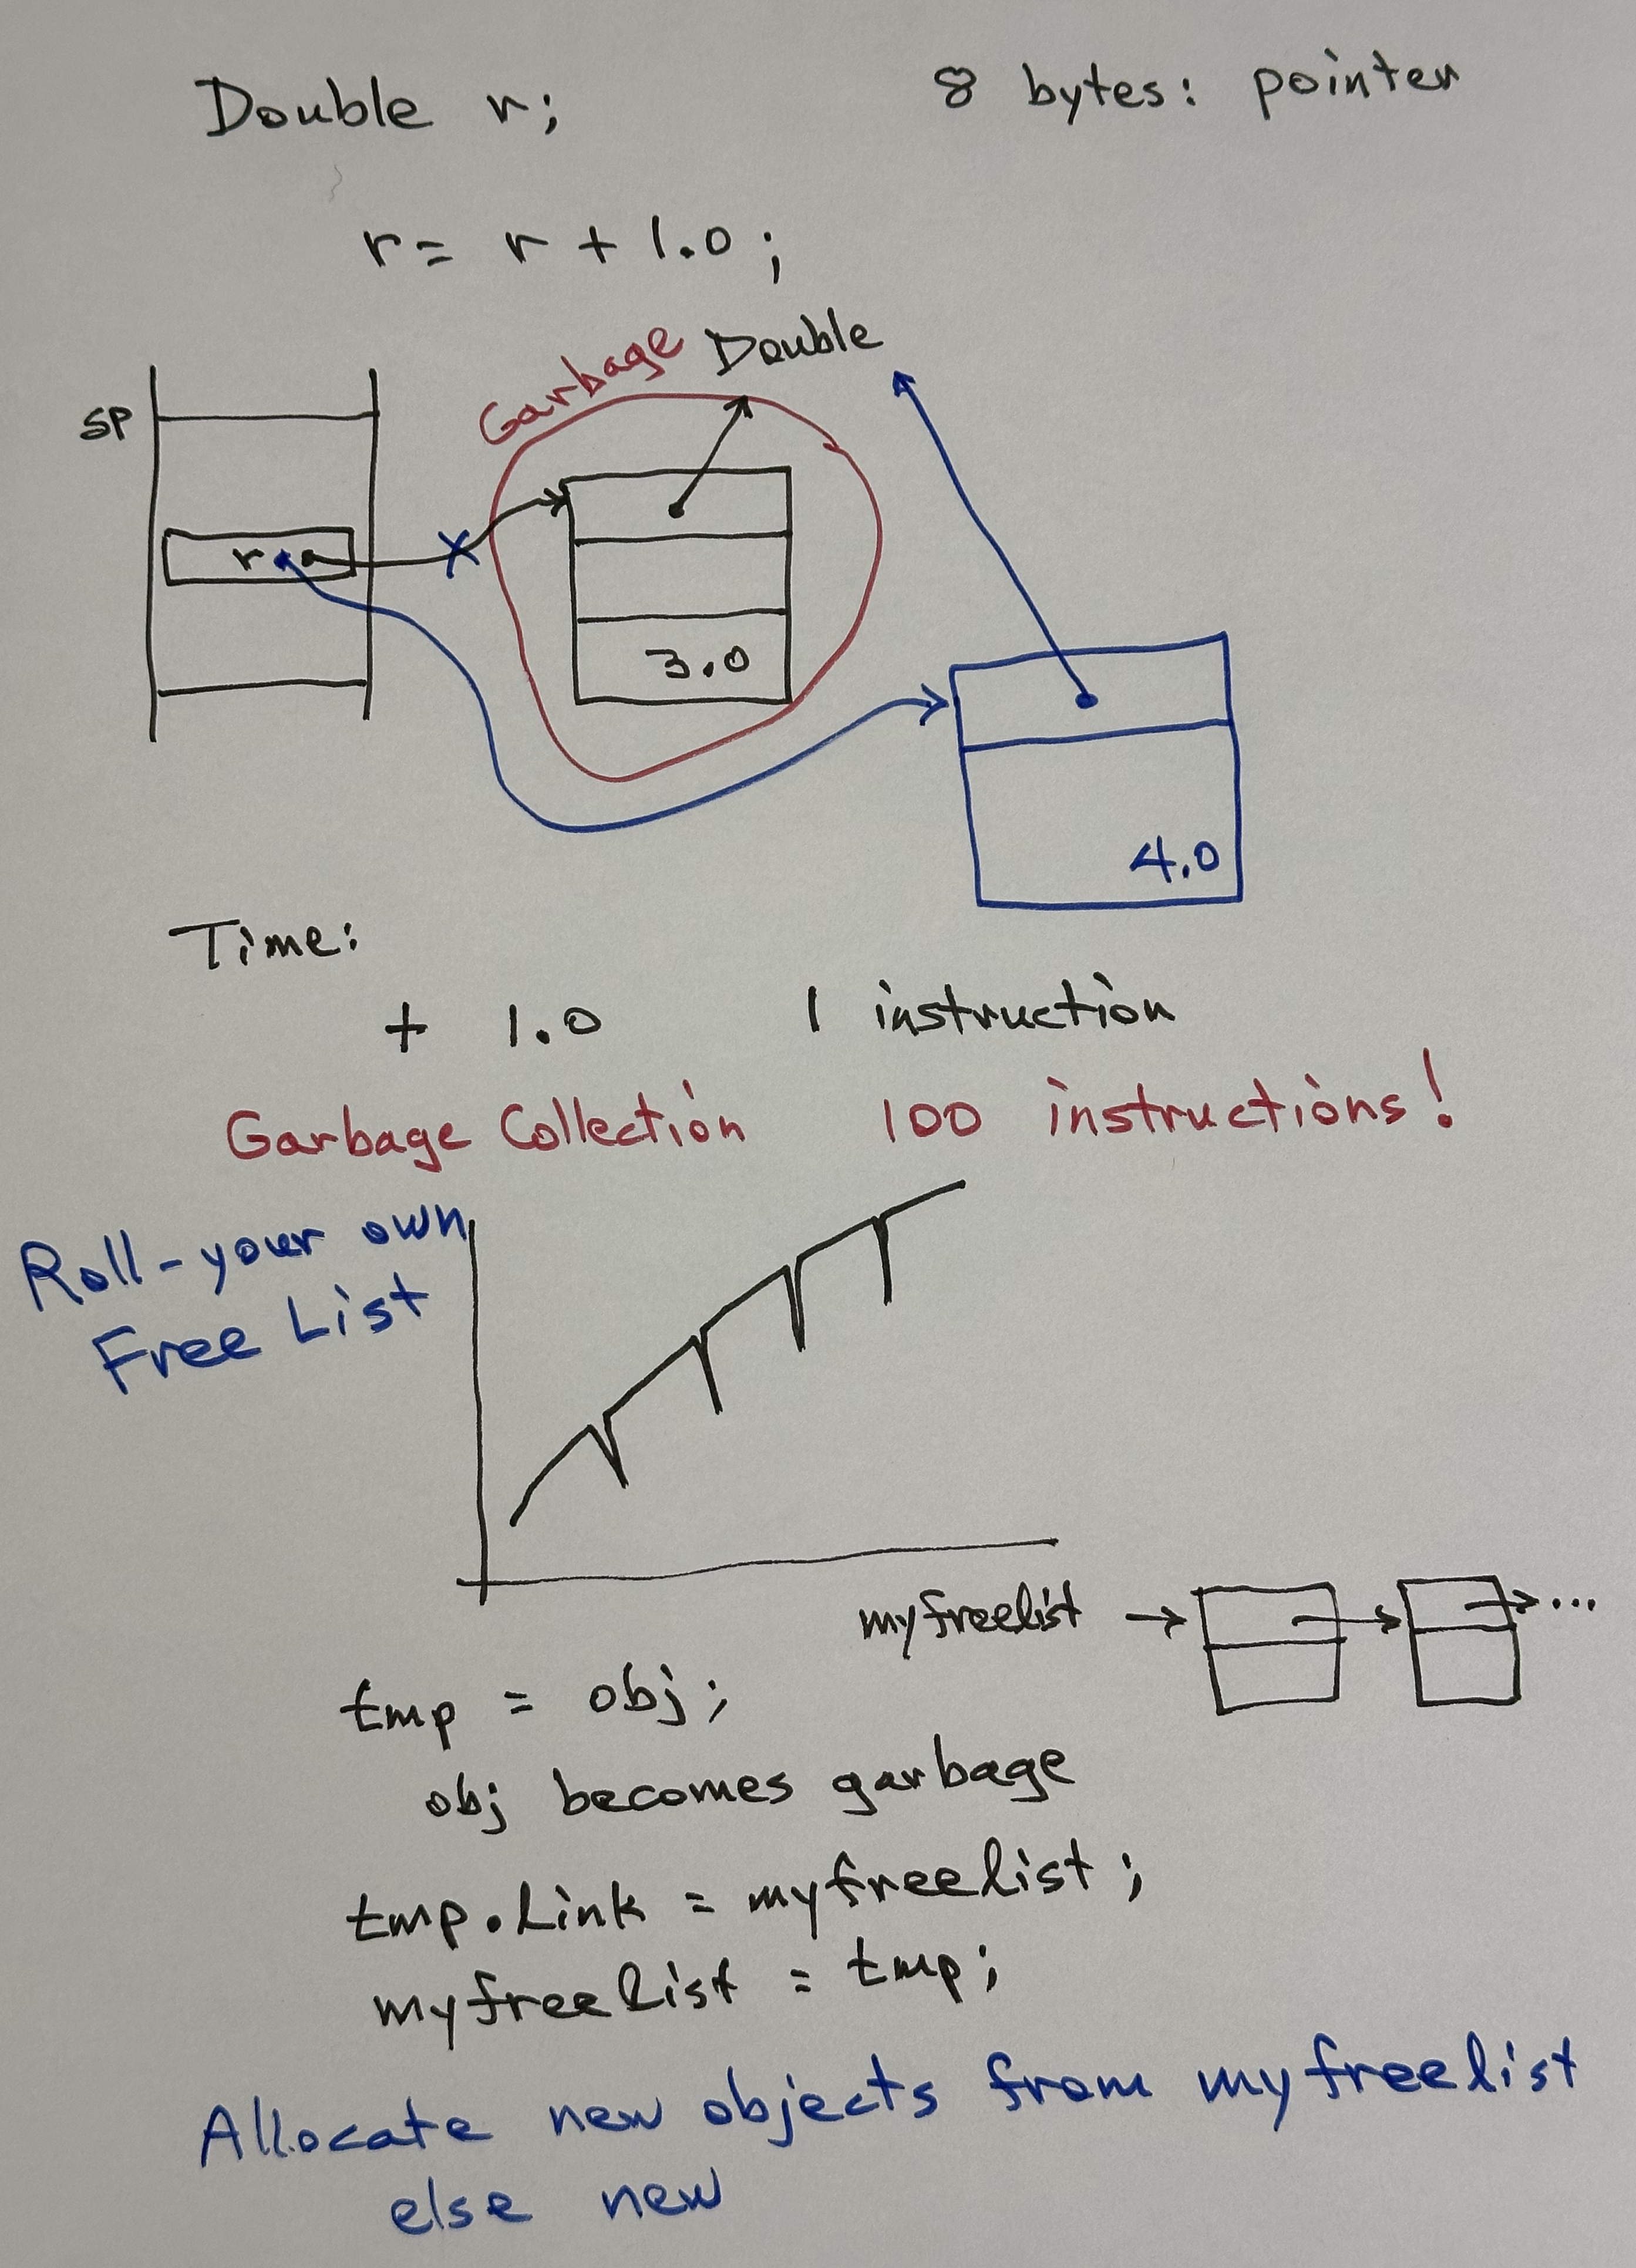 Double r;
8 bytes: pointer
r = r + 1.0 ;
Garbage
Double
SP
r
3.0
4.0
Time:
+ 1.0 1 instruction
Garbage Collection 100 instructions!
Roll-your own
Free List
myfreelist → ...
tmp = obj;
obj becomes garbage
tmp.link = myfreelist ;
myfreelist = tmp;
Allocate new objects from myfreelist
else new